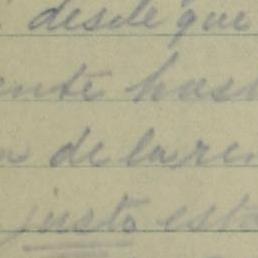 desde que
ente has
de la ren
justo esta